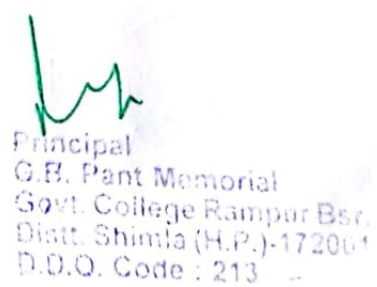 Principal
G.B. Pant Memorial
Govt. College Rampur Bsr.
Distt. Shimla (H.P.)-172001
D.D.O. Code : 213